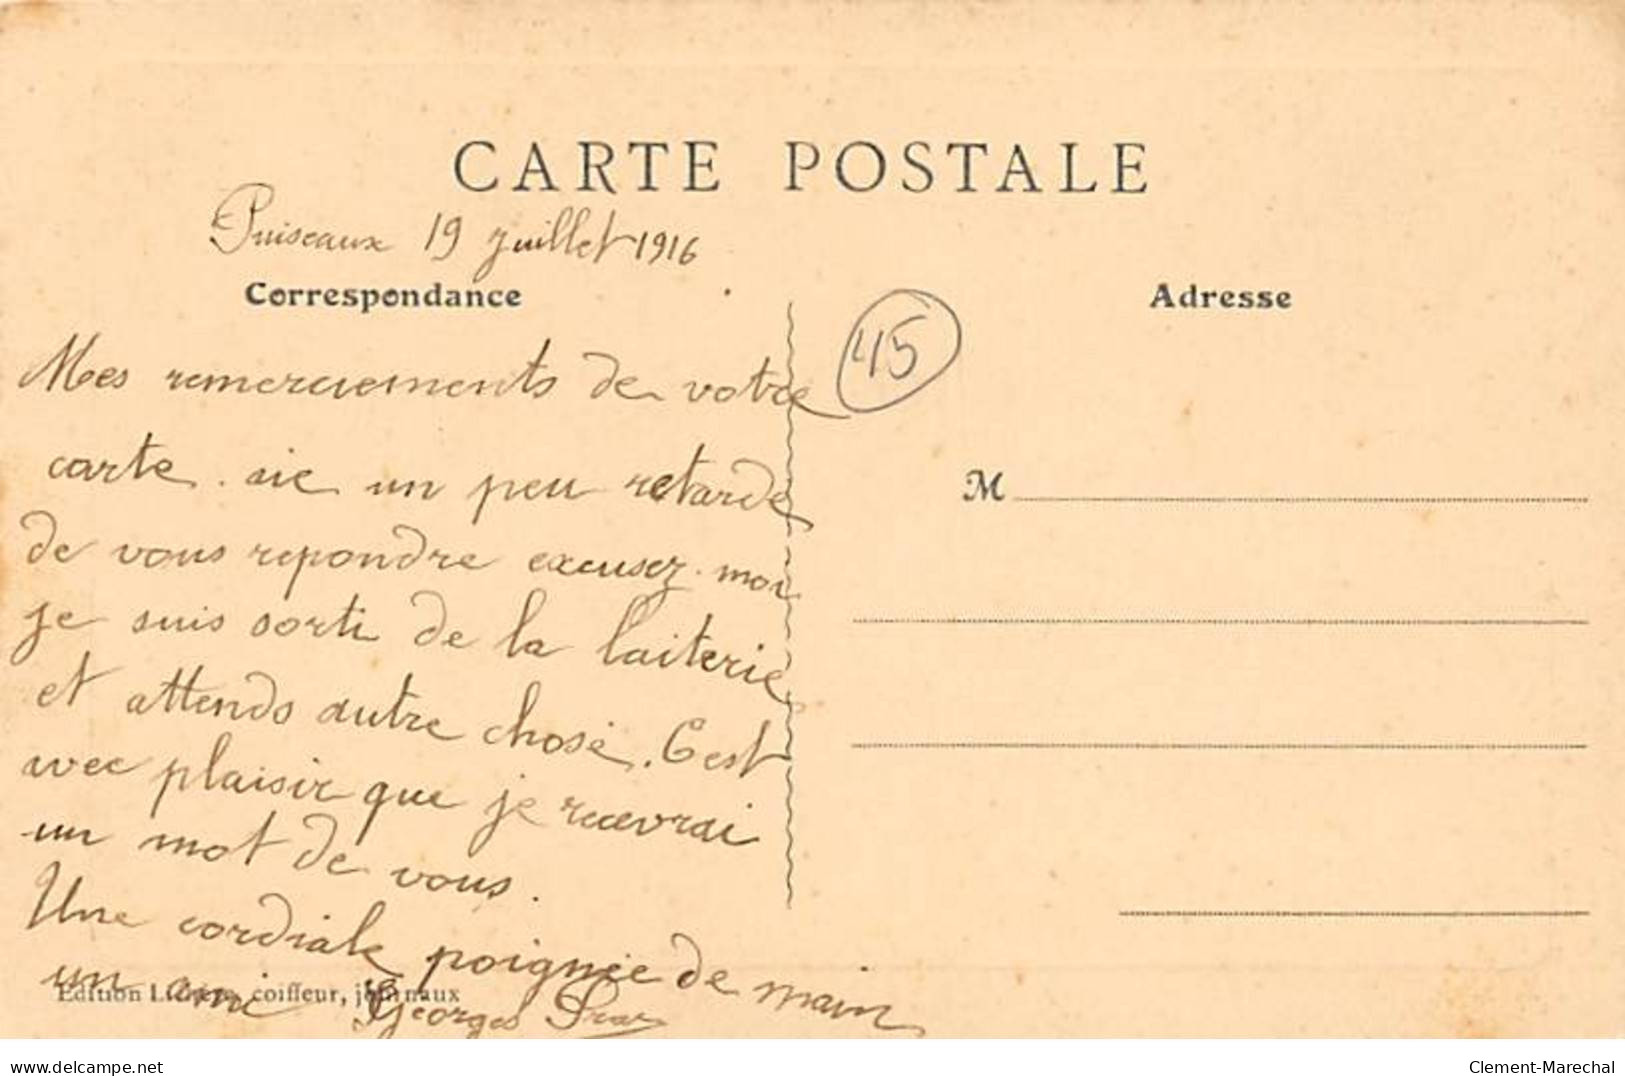 CARTE POSTALE
Puiseaux 19 juillet 1916
Correspondance
Adresse
45
Mes remerciements de votre
carte. aie un peu retarde
de vous repondre excusez-moi
je suis sorti de la laiterie
et attends autre chose. C'est
avec plaisir que je recevrai
un mot de vous.
Une cordiale poignée de main
un ami Georges
M
Edition coiffeur, journaux
delcampe.net
Clement-Marechal